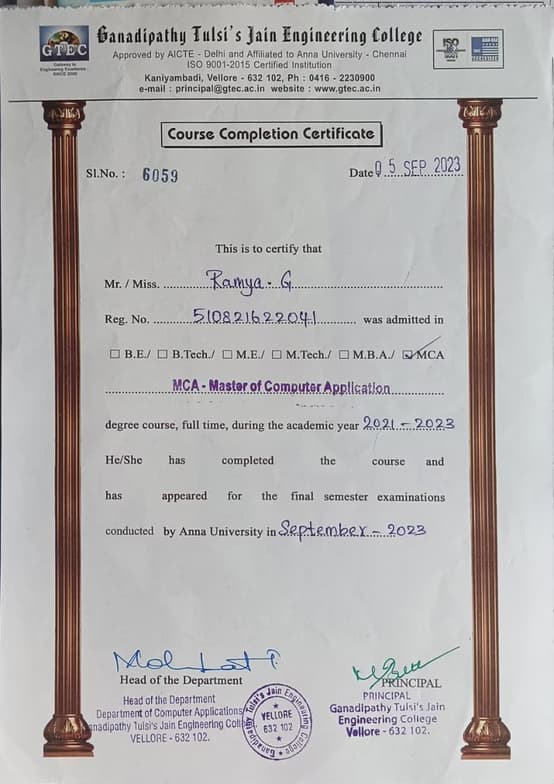 GTEC
Gateway to
Engineering Excellence
SINCE 2000
Ganadipathy Tulsi's Jain Engineering College
Approved by AICTE - Delhi and Affiliated to Anna University - Chennai
ISO 9001-2015 Certified Institution
Kaniyambadi, Vellore - 632 102, Ph : 0416 - 2230900
e-mail : principal@gtec.ac.in website : www.gtec.ac.in
ISO
Course Completion Certificate
Sl.No. : 6059
Date 05 SEP 2023
This is to certify that
Mr. / Miss. Ramya. G
Reg. No. 510821622041 was admitted in
☐ B.E./ ☐ B.Tech./ ☐ M.E./ ☐ M.Tech./ ☐ M.B.A./ ☑ MCA
MCA - Master of Computer Application
degree course, full time, during the academic year 2021 - 2023
He/She has completed the course and
has appeared for the final semester examinations
conducted by Anna University in September - 2023
Head of the Department
Head of the Department
Department of Computer Applications
Ganadipathy Tulsi's Jain Engineering College
VELLORE - 632 102.
Ganadipathy Tulsi's Jain Engineering College
VELLORE
632 102
PRINCIPAL
PRINCIPAL
Ganadipathy Tulsi's Jain
Engineering College
Vellore - 632 102.